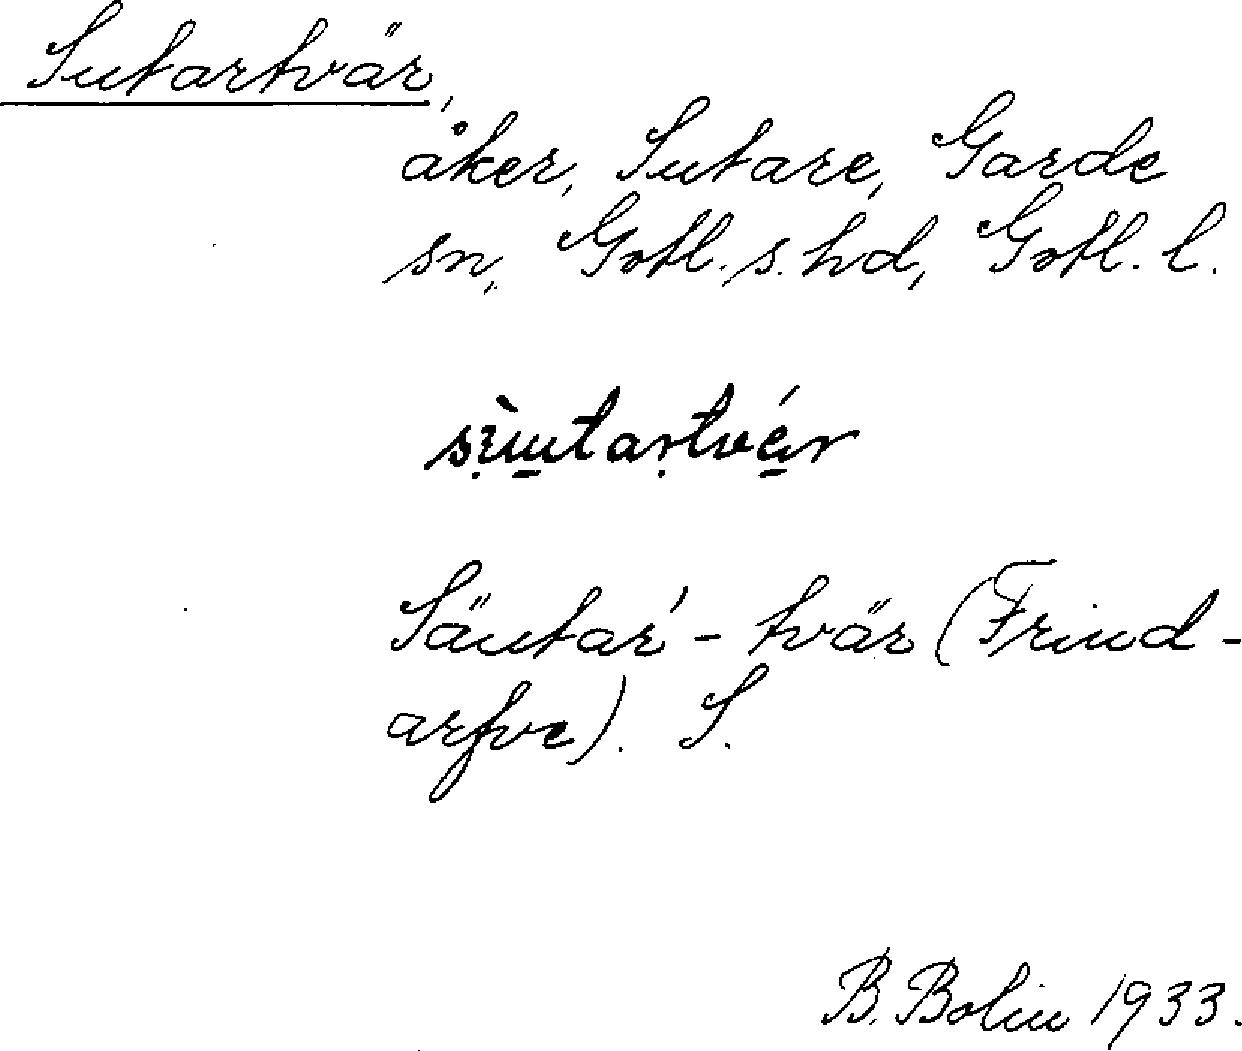 Sutartvär,
åker, Sutare, Garde
sn, Gotl. s. hd, Gotl. l.
Säutar'-tvär (Frind-
arfve). S.
B. Bolin 1933.